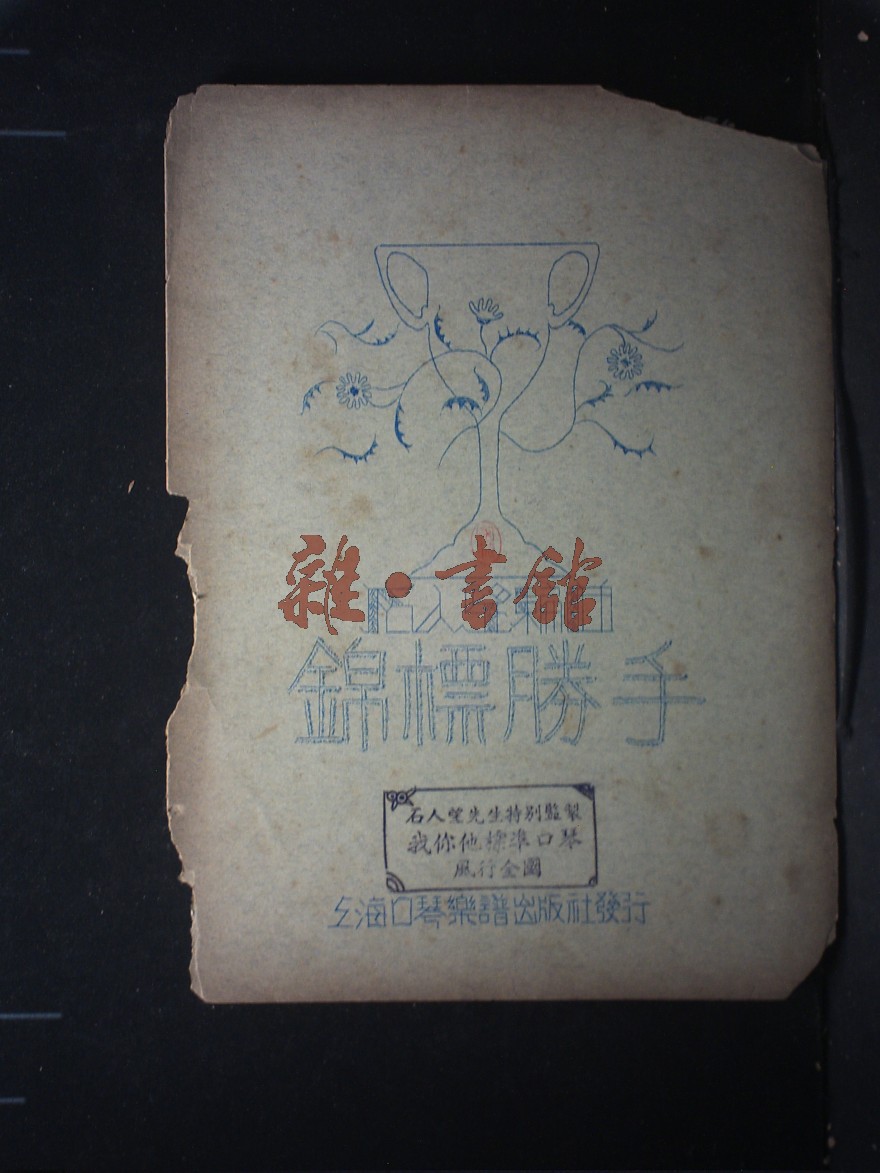 雜·書館
錦標勝手
石人望先生特別監製
我你他標準口琴
風行全國
上海口琴樂譜出版社發行